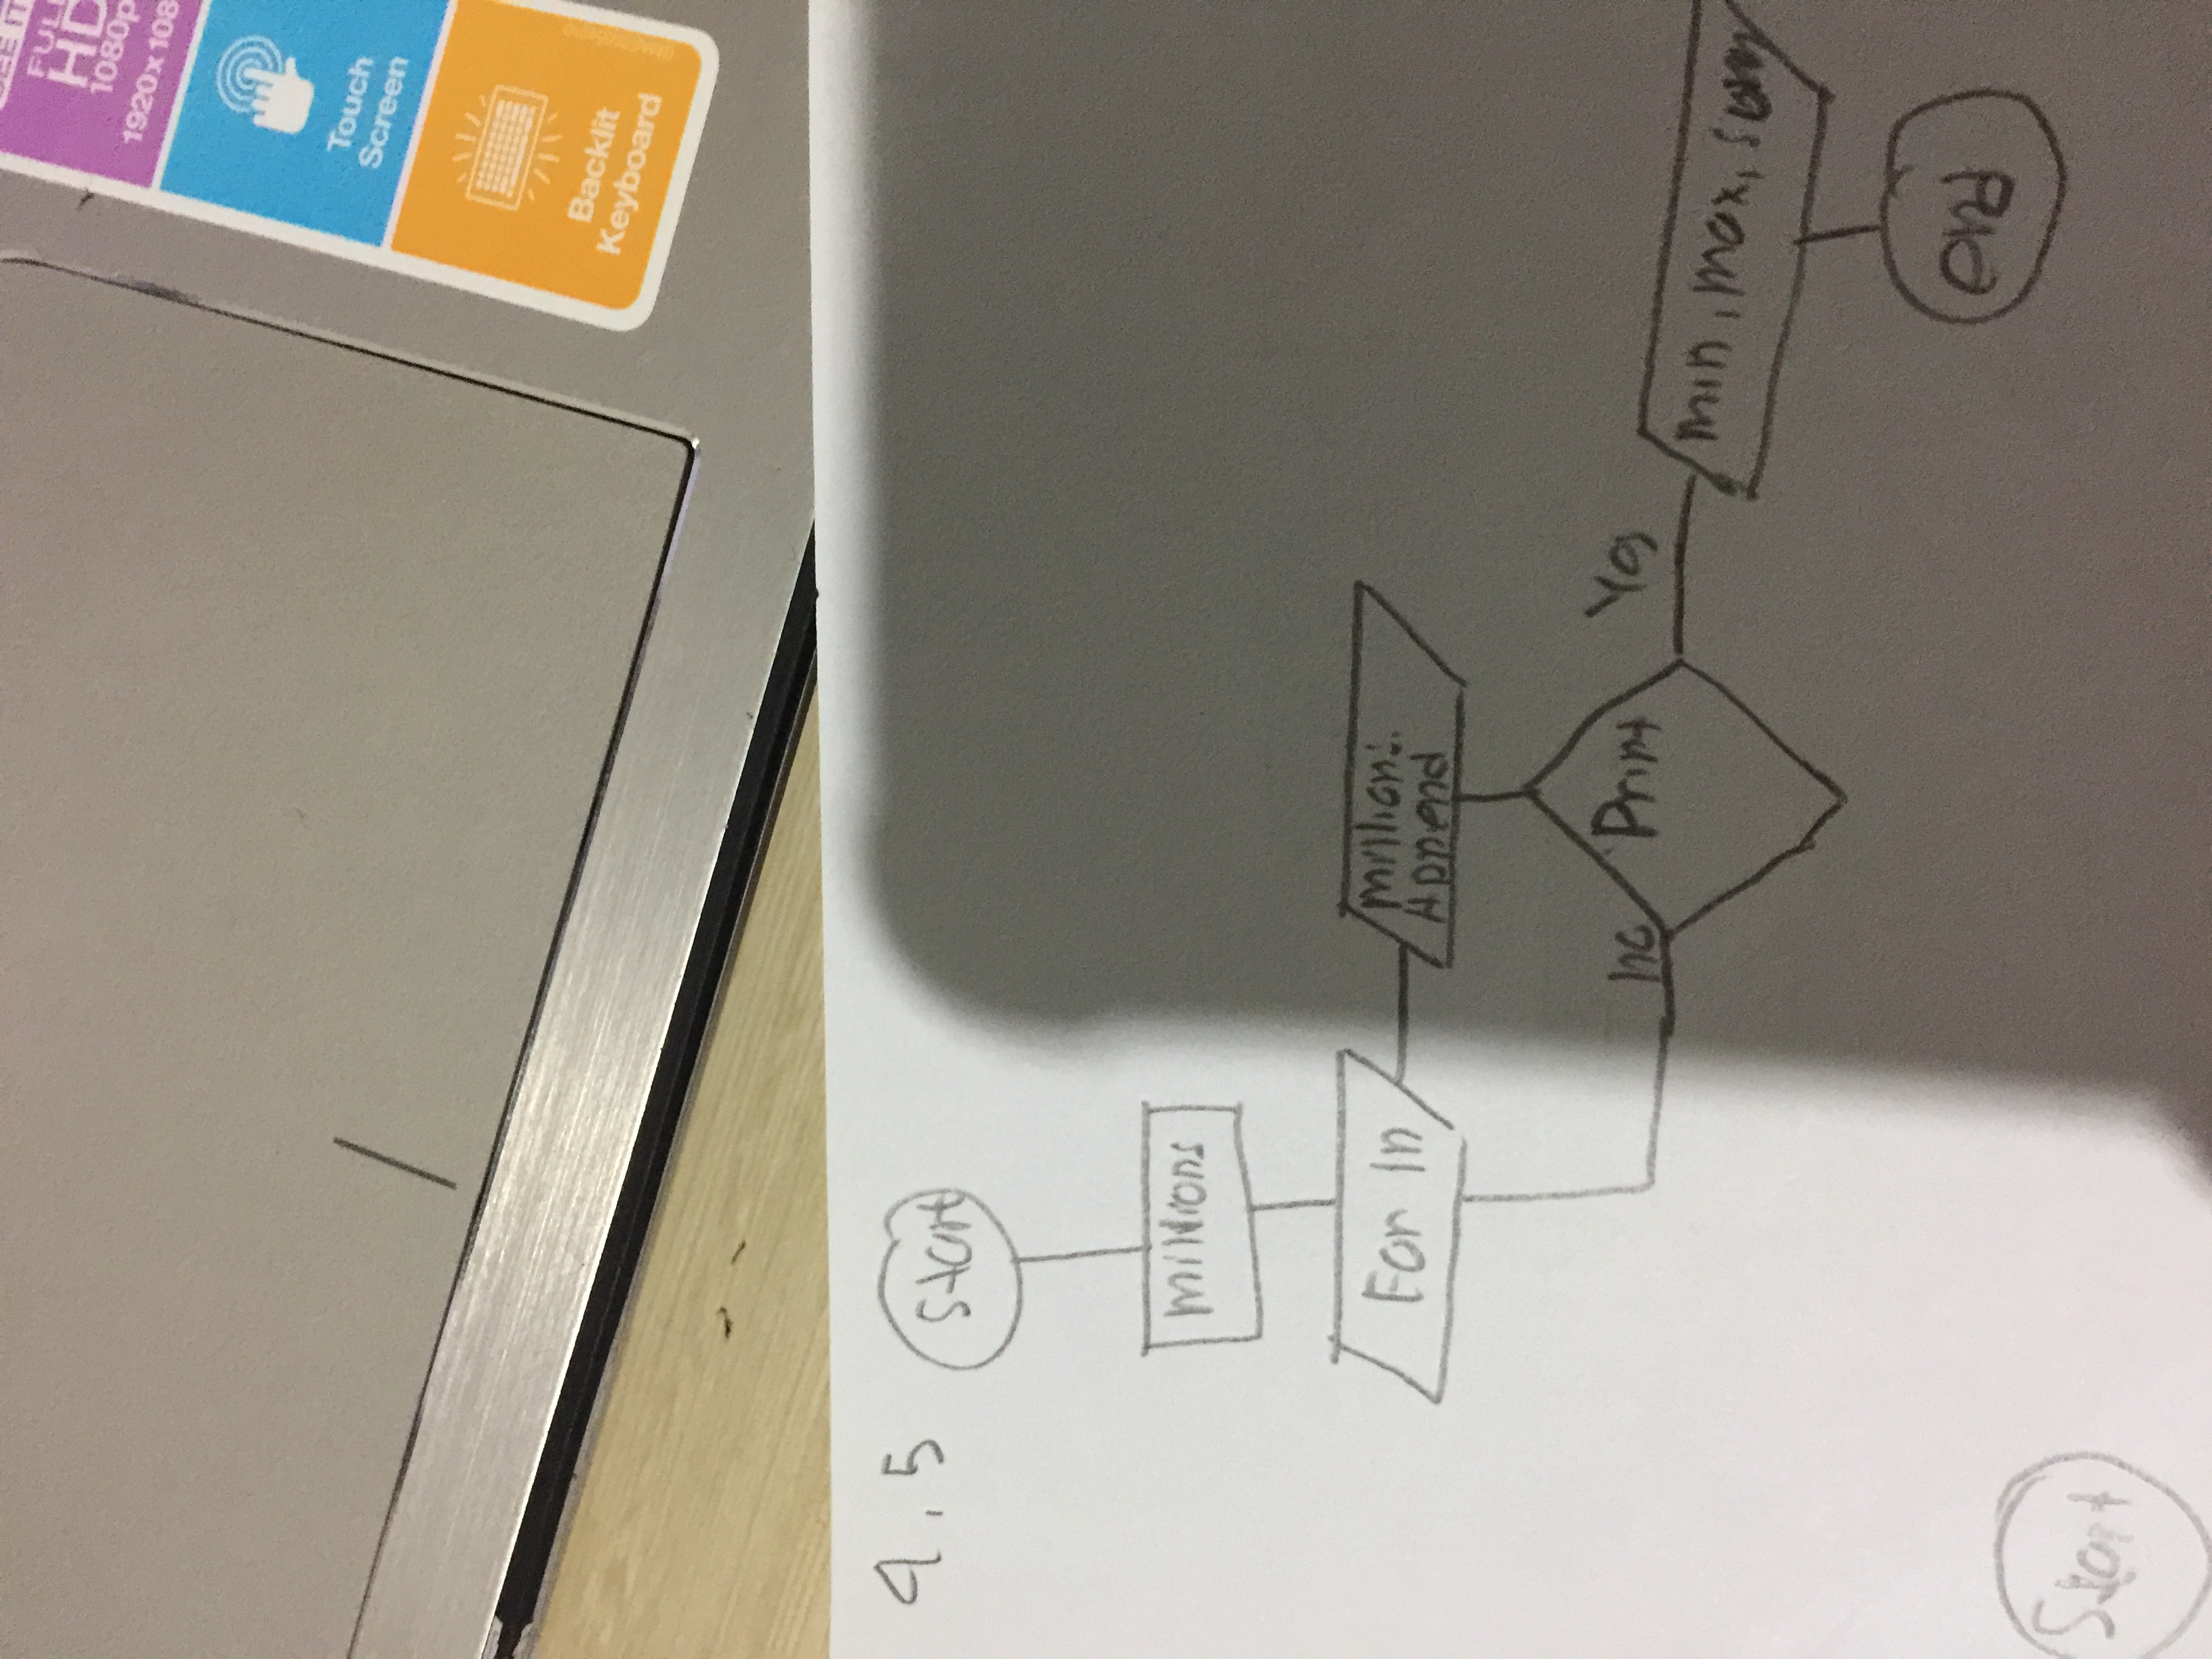 SEE IT
FULL
HD
1080p
1920x108
Touch
Screen
Backlit
Keyboard
4.5
Start
millions
For In
millions.
Append
Print
no
Yes
min, max, sum
end
Start